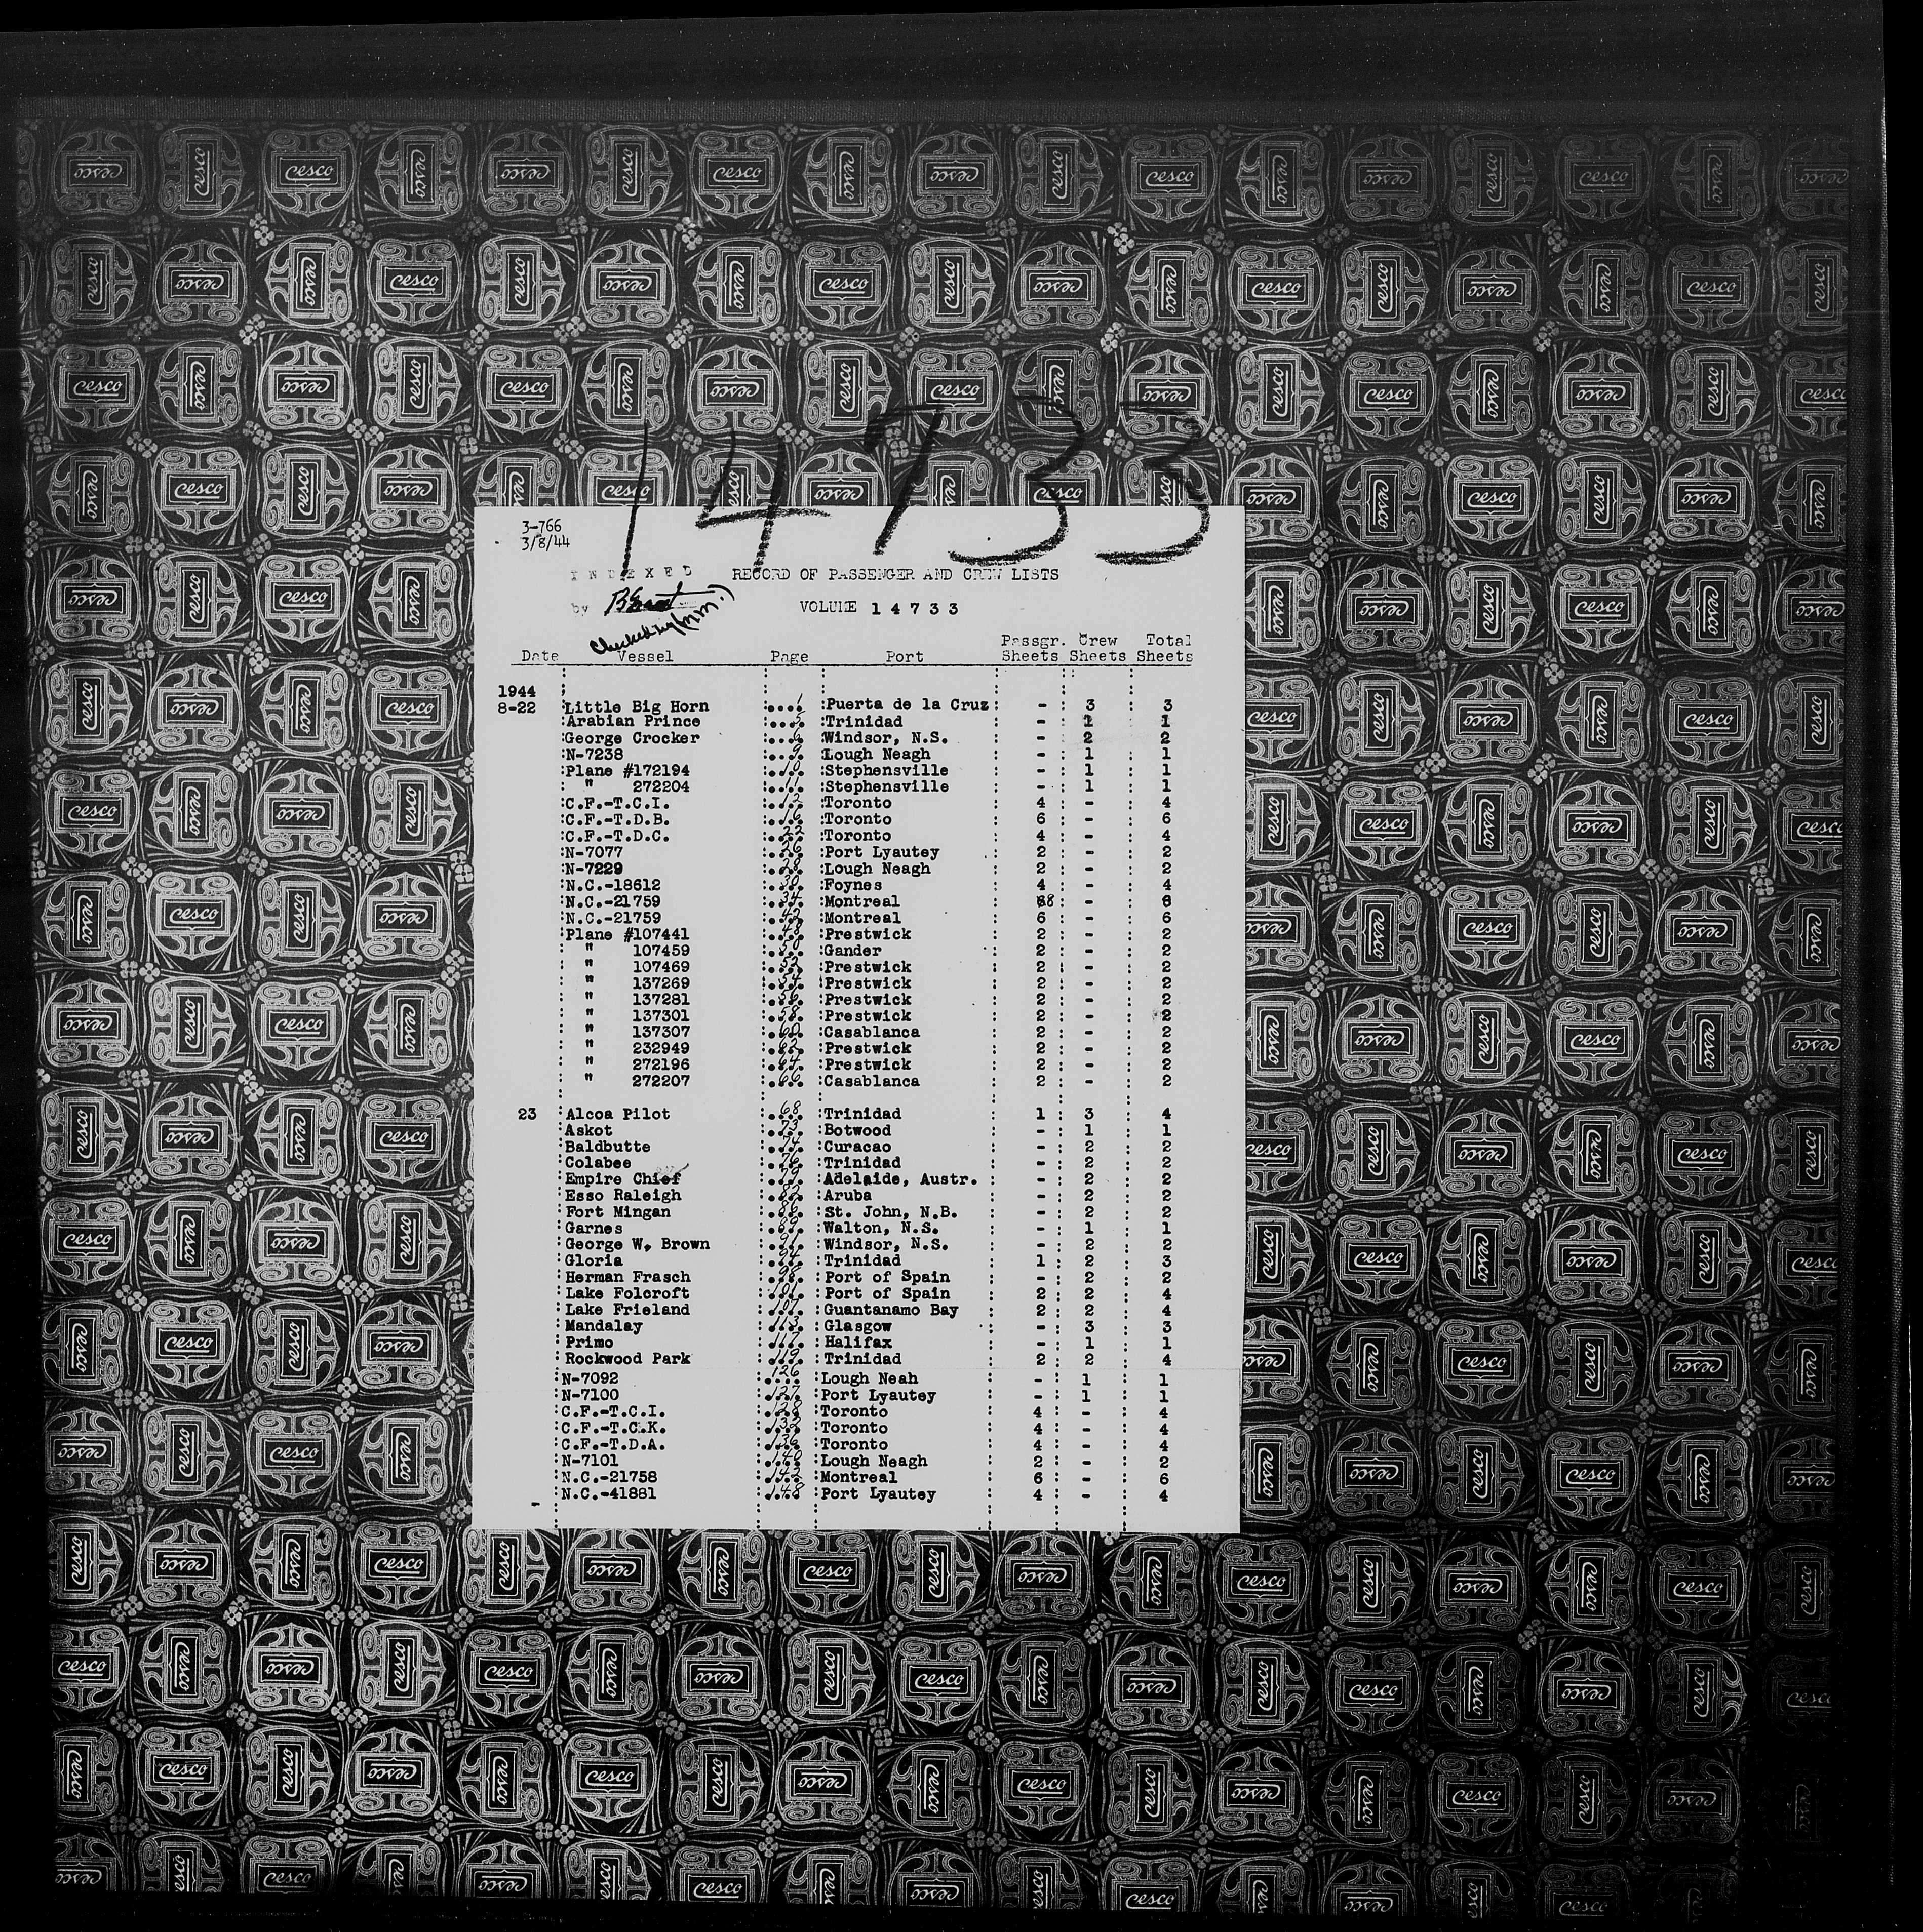 14733
3-766
3/8/44
INDEXED RECORD OF PASSENGER AND CREW LISTS
by VOLUME 14733
Checked by (m.m.)
Date Vessel Page Port Passgr. Sheets Crew Sheets Total Sheets
1944
8-22 Little Big Horn 1 Puerta de la Cruz - 3 3
Arabian Prince 5 Trinidad - 1 1
George Crocker 6 Windsor, N.S. - 2 2
N-7238 9 Lough Neagh - 1 1
Plane #172194 10 Stephensville - 1 1
" 272204 11 Stephensville - 1 1
C.F.-T.C.I. 12 Toronto 4 - 4
C.F.-T.D.B. 16 Toronto 6 - 6
C.F.-T.D.C. 22 Toronto 4 - 4
N-7077 26 Port Lyautey 2 - 2
N-7229 28 Lough Neagh 2 - 2
N.C.-18612 30 Foynes 4 - 4
N.C.-21759 34 Montreal 8 -
N.C.-21759 42 Montreal 6 - 6
Plane #107441 48 Prestwick 2 - 2
" 107459 50 Gander 2 - 2
" 107469 52 Prestwick 2 - 2
" 137269 54 Prestwick 2 - 2
" 137281 56 Prestwick 2 - 2
" 137301 58 Prestwick 2 - 2
" 137307 60 Casablanca 2 - 2
" 232949 62 Prestwick 2 - 2
" 272196 64 Prestwick 2 - 2
" 272207 66 Casablanca 2 - 2
23 Alcoa Pilot 68 Trinidad 1 3 4
Askot 73 Botwood - 1 1
Baldbutte 74 Curacao - 2 2
Colabee 76 Trinidad - 2 2
Empire Chief 79 Adelaide, Austr. - 2 2
Esso Raleigh 82 Aruba - 2 2
Fort Mingan 86 St. John, N.B. - 2 2
Garnes 89 Walton, N.S. - 1 1
George W. Brown 91 Windsor, N.S. - 2 2
Gloria 94 Trinidad 1 2 3
Herman Frasch 98 Port of Spain - 2 2
Lake Folcroft 101 Port of Spain 2 2 4
Lake Frieland 107 Guantanamo Bay 2 2 4
Mandalay 113 Glasgow - 3 3
Primo 117 Halifax - 1 1
Rockwood Park 119 Trinidad 2 2 4
N-7092 126 Lough Neah - 1 1
N-7100 127 Port Lyautey - 1 1
C.F.-T.C.I. 128 Toronto 4 - 4
C.F.-T.C.K. 132 Toronto 4 - 4
C.F.-T.D.A. 136 Toronto 4 - 4
N-7101 140 Lough Neagh 2 - 2
N.C.-21758 142 Montreal 6 - 6
N.C.-41881 148 Port Lyautey 4 - 4
cesco